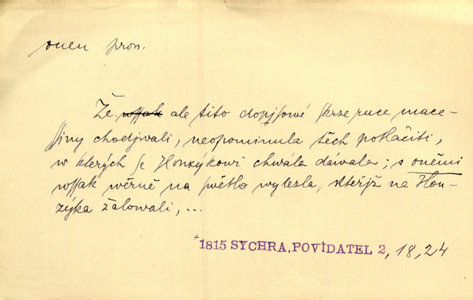 onen pron.
Že wssak ale tito dopisowé skrze ruce mace-
ssiny chodjwali, neopominula těch potlačiti,
w kterých se Honzykowi chwala dáwala; s oněmi
wssak wěrně na swětlo wylezla, kteřjž na Hon-
zýka žalowali, ...
1815 SYCHRA, POVÍDATEL 2, 18, 24